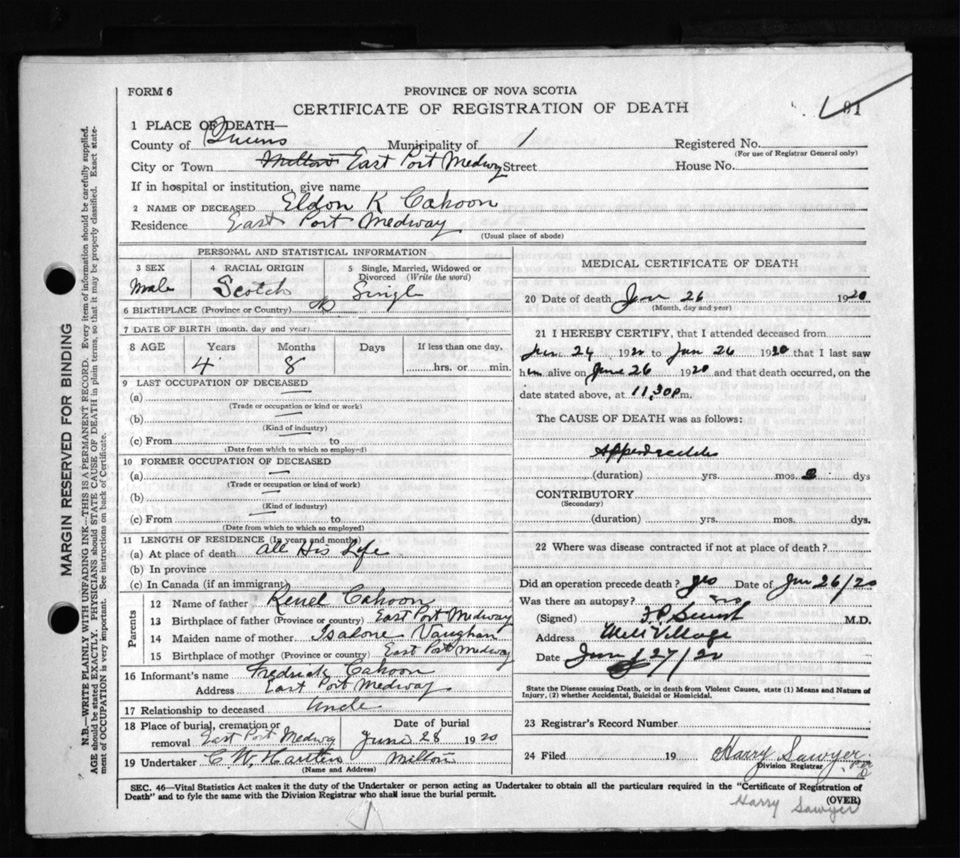 FORM 6
PROVINCE OF NOVA SCOTIA
CERTIFICATE OF REGISTRATION OF DEATH
91
1 PLACE OF DEATH—
County of Queens Municipality of Registered No.
(For use of Registrar General only)
City or Town Milton East Port Medway Street House No.
If in hospital or institution, give name
2 NAME OF DECEASED Eldon K Cahoon
Residence East Port Medway
(Usual place of abode)
PERSONAL AND STATISTICAL INFORMATION
3 SEX 4 RACIAL ORIGIN 5 Single, Married, Widowed or Divorced (Write the word)
Male Scotch Single
6 BIRTHPLACE (Province or Country)
7 DATE OF BIRTH (month, day and year)
8 AGE Years Months Days If less than one day,
4 8 hrs. or min.
9 LAST OCCUPATION OF DECEASED
(a)
(Trade or occupation or kind or work)
(b)
(Kind of industry)
(c) From to
(Date from which to which so employed)
10 FORMER OCCUPATION OF DECEASED
(a)
(Trade or occupation or kind of work)
(b)
(Kind of industry)
(c) From to
(Date from which to which so employed)
11 LENGTH OF RESIDENCE (In years and months)
(a) At place of death All His Life
(b) In province
(c) In Canada (if an immigrant)
Parents
12 Name of father Renel Cahoon
13 Birthplace of father (Province or country) East Port Medway
14 Maiden name of mother Isalone Vaughan
15 Birthplace of mother (Province or country) East Port Medway
16 Informant's name Fredrick Cahoon
Address East Port Medway
17 Relationship to deceased Uncle
18 Place of burial, cremation or removal East Port Medway Date of burial June 28 1920
19 Undertaker C. W. Milton
(Name and Address)
MEDICAL CERTIFICATE OF DEATH
20 Date of death Jun 26 1920
(Month, day and year)
21 I HEREBY CERTIFY, that I attended deceased from
Jun 24 1920 to Jun 26 1920 that I last saw
him alive on June 26 1920 and that death occurred, on the
date stated above, at 11.30 p.m.
The CAUSE OF DEATH was as follows:
Appendicitis
(duration) yrs. mos. dys
CONTRIBUTORY
(Secondary)
(duration) yrs. mos. dys.
22 Where was disease contracted if not at place of death?
Did an operation precede death? yes Date of Jun 26/20
Was there an autopsy? no
(Signed) M.D.
Address Mill Village
Date June 27/20
State the Disease causing Death, or in death from Violent Causes, state (1) Means and Nature of
Injury, (2) whether Accidental, Suicidal or Homicidal.
23 Registrar's Record Number
24 Filed 19 Harry Sawyer
Division Registrar
SEC. 46—Vital Statistics Act makes it the duty of the Undertaker or person acting as Undertaker to obtain all the particulars required in the "Certificate of Registration of
Death" and to fyle the same with the Division Registrar who shall issue the burial permit.
(OVER)
Harry Sawyer
MARGIN RESERVED FOR BINDING
N.B.—WRITE PLAINLY WITH UNFADING INK—THIS IS A PERMANENT RECORD. Every item of information should be carefully supplied.
AGE should be stated EXACTLY. PHYSICIANS should STATE CAUSE OF DEATH in plain terms, so that it may be properly classified. Exact state-
ment of OCCUPATION is very important. See instructions on back of Certificate.